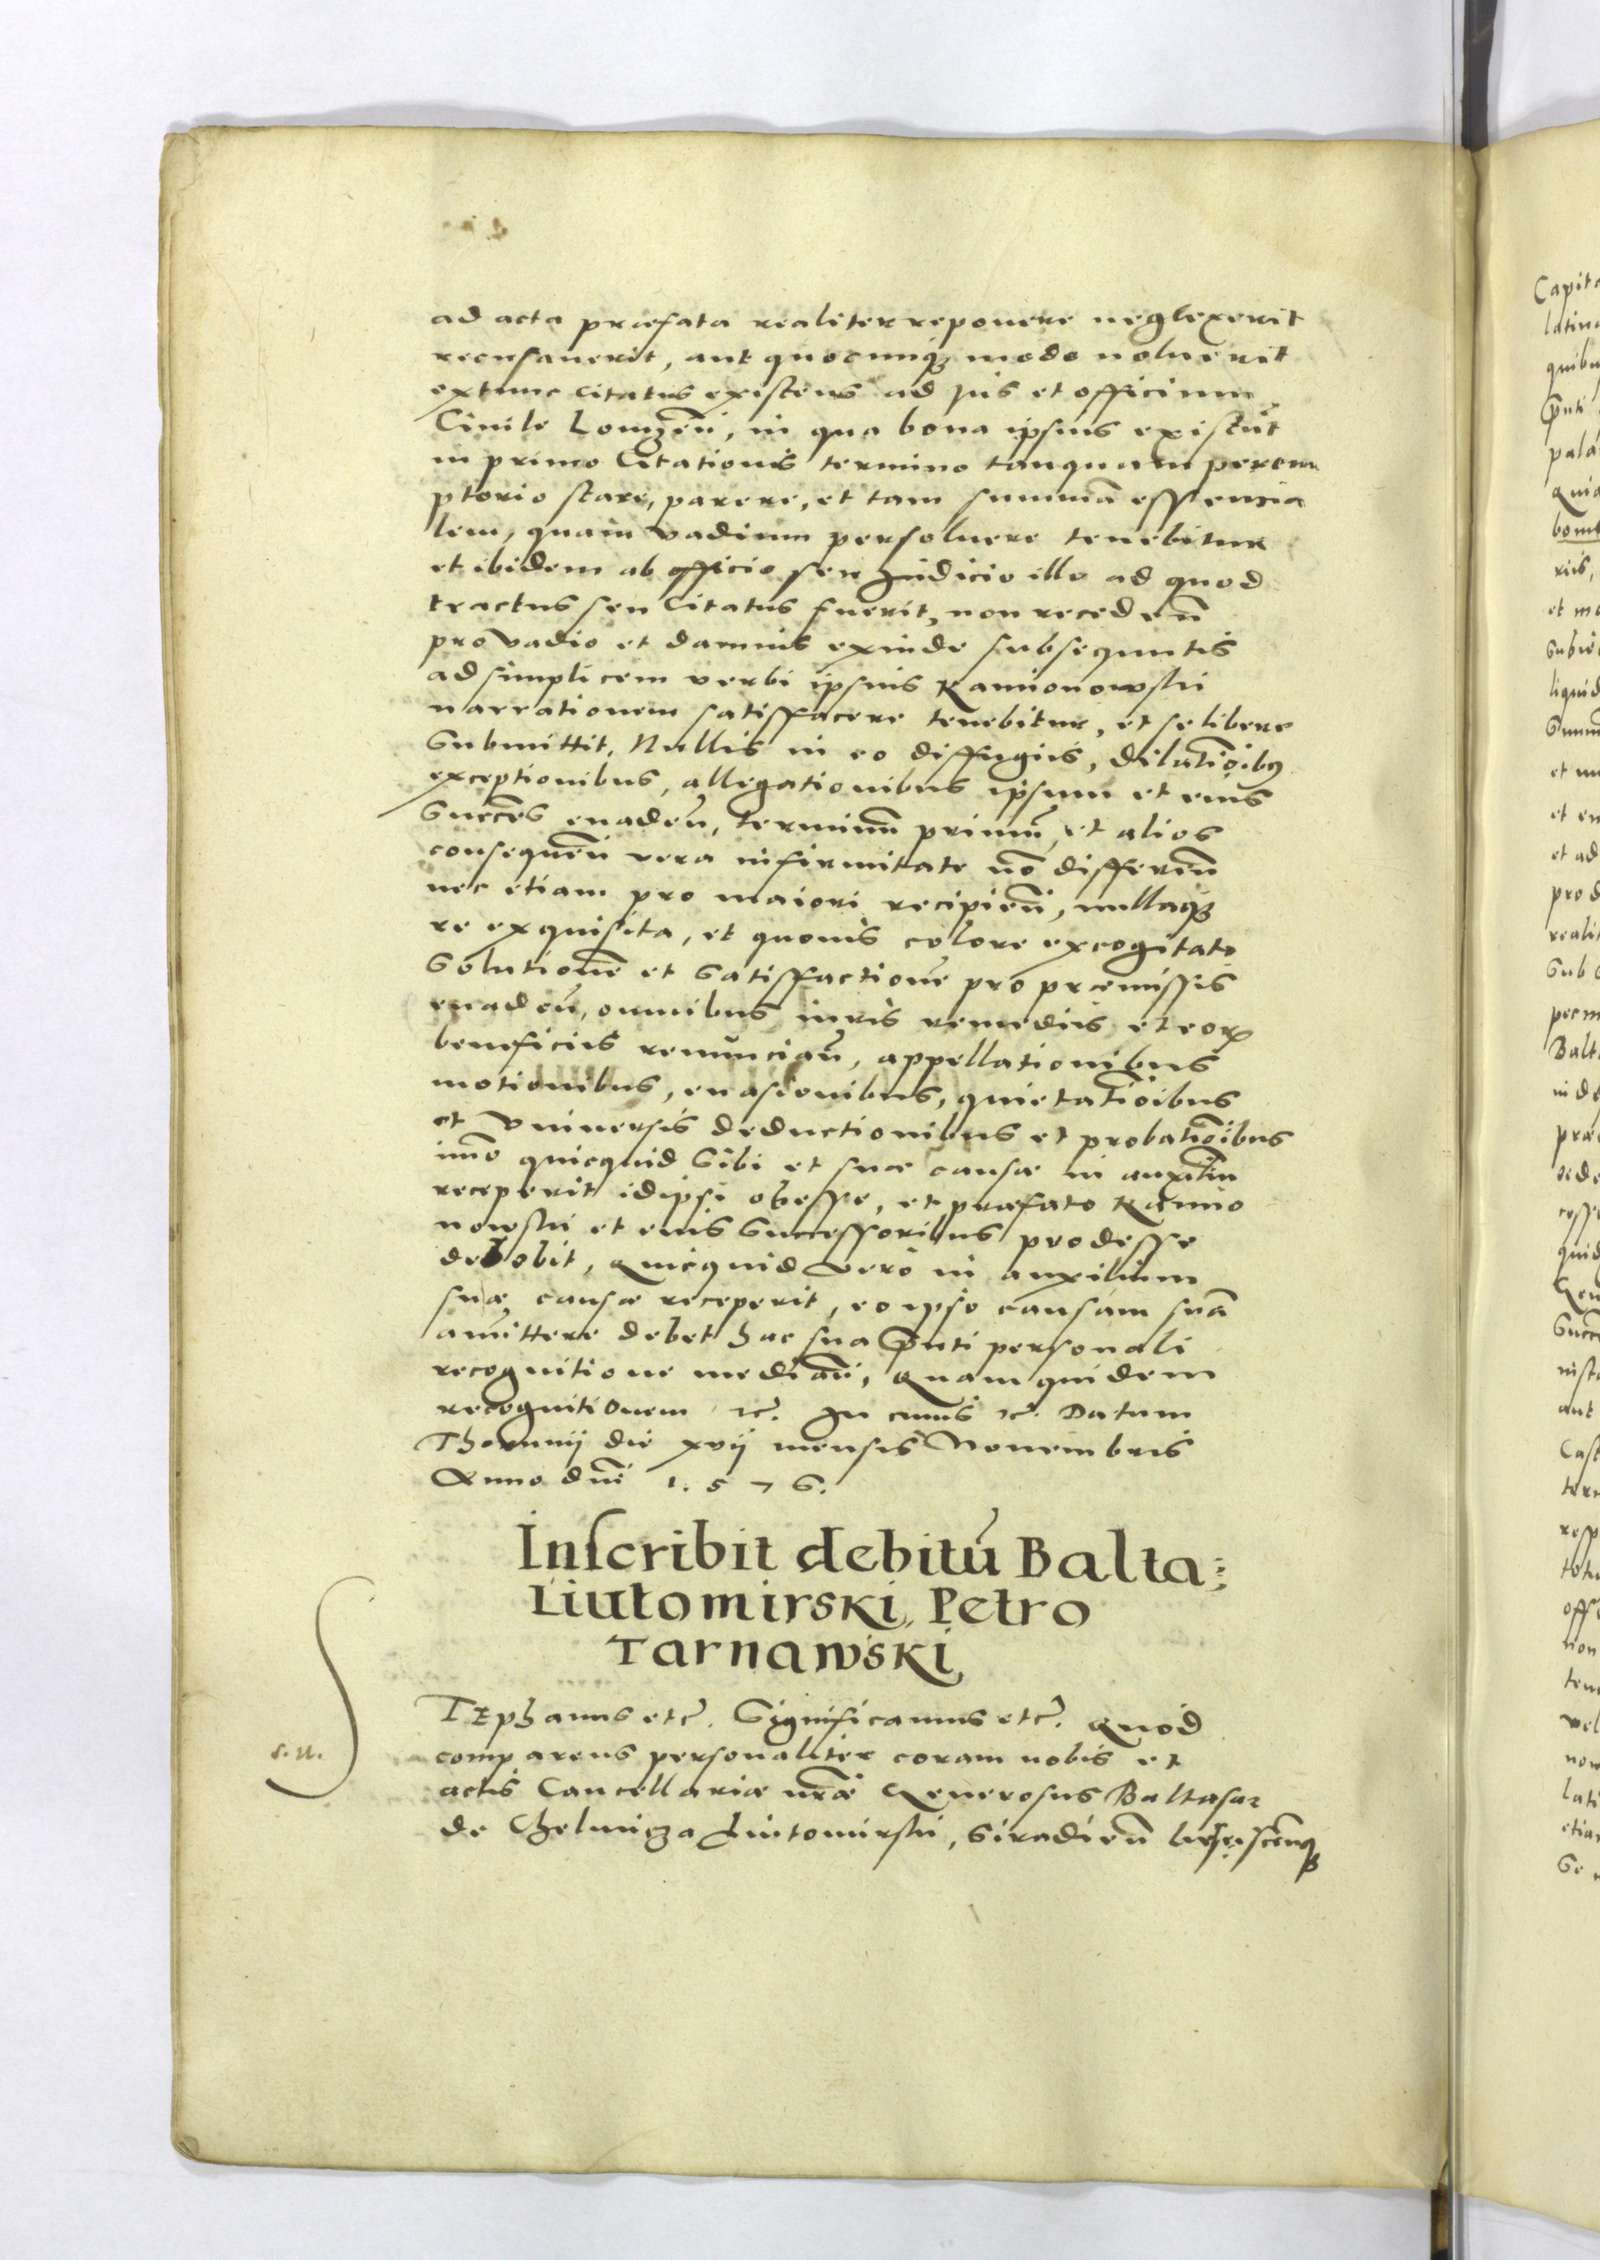 ad acta præfata realiter reponere neglexerit
recusauerit, aut quocunq3 modo noluerit
extunc citatus existens ad ius et officium
Ciuile Lomzeñ, in qua bona ipsius existūt
in primo Citationis termino tanquam perem
ptorio stare, parere, et tam summā essencia
lem, quam vadium persoluere tenebitur
et ibidem ab officio seu Judicio illo ad quod
tractus seu Citatus fuerit, non recedeñ
pro vadio et damnis exinde subsequutis
ad simplicem verbi ipsius Kamionowski
narrationem satisfacere tenebitur, et se libere
submittit. Nullis in eo diffugiis, dilatiōib9
exceptionibus, allegationibus ipsum et eius
succēs euadeñ, terminum primū, et alios
consequeñ vera infirmitate nō differeñ
nec etiam pro maiori recipieñ, nullaq3
re exquisita, et quouis colore excogitato
solutionē et satisfactionē pro præmissis
euadeñ, omnibus iuris remediis et eorꝝ
beneficiis renunciañ, appellationibus
motionibus, euasionibus, quietatiōibus
et vniuersis deductionibus et probatiōibus
imō quicquid sibi et suæ causæ in auxiliū
receperit id ipsi obesse, et præfato Kamio
nowski et eius successoribus prodesse
debebit, Quicquid vero in auxilium
suæ causæ receperit, eo ipso causam suā
amittere debet hac sua p̄nti personali
recognitione mediañ, Quam quidem
recognitionem etc̄. In cuius etc̄. Datum
Thorunij die xvij mensis Nouembris
Anno dñi 1.5 7 6.
Inscribit debitū Balta:
Liutomirski, Petro
Tarnawski
STEphanus etc̄. Significamus etc̄. Quod
comparens personaliter coram nobis et
actis Cancellariæ nr̄æ Generosus Baltasar
de Chelmicza Liutomirski, Siradieñ